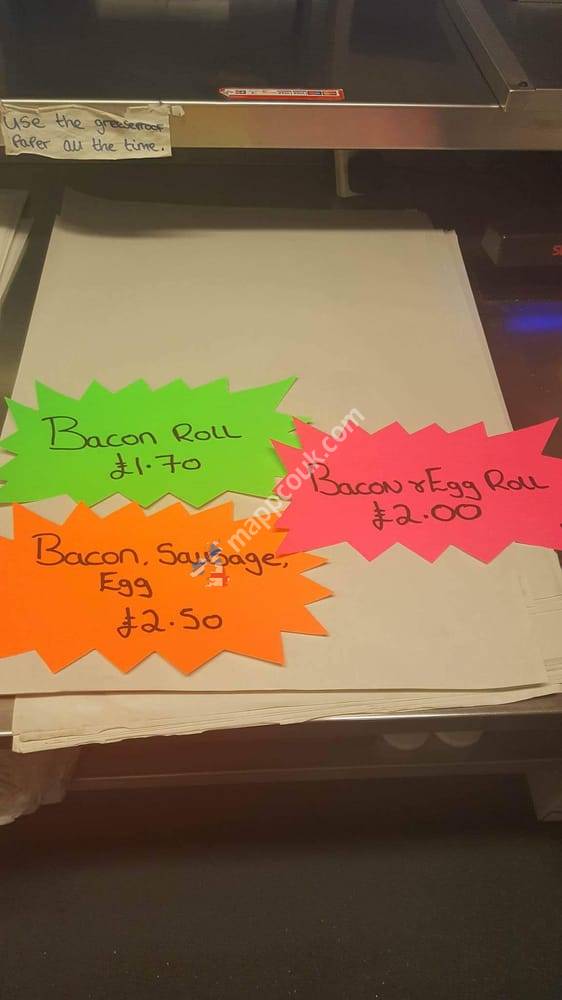 use the greaseproof
Paper all the time.
Bacon Roll
£1.70
Bacon & Egg Roll
£2.00
Bacon, Sausage,
Egg
£2.50
mappcouk.com